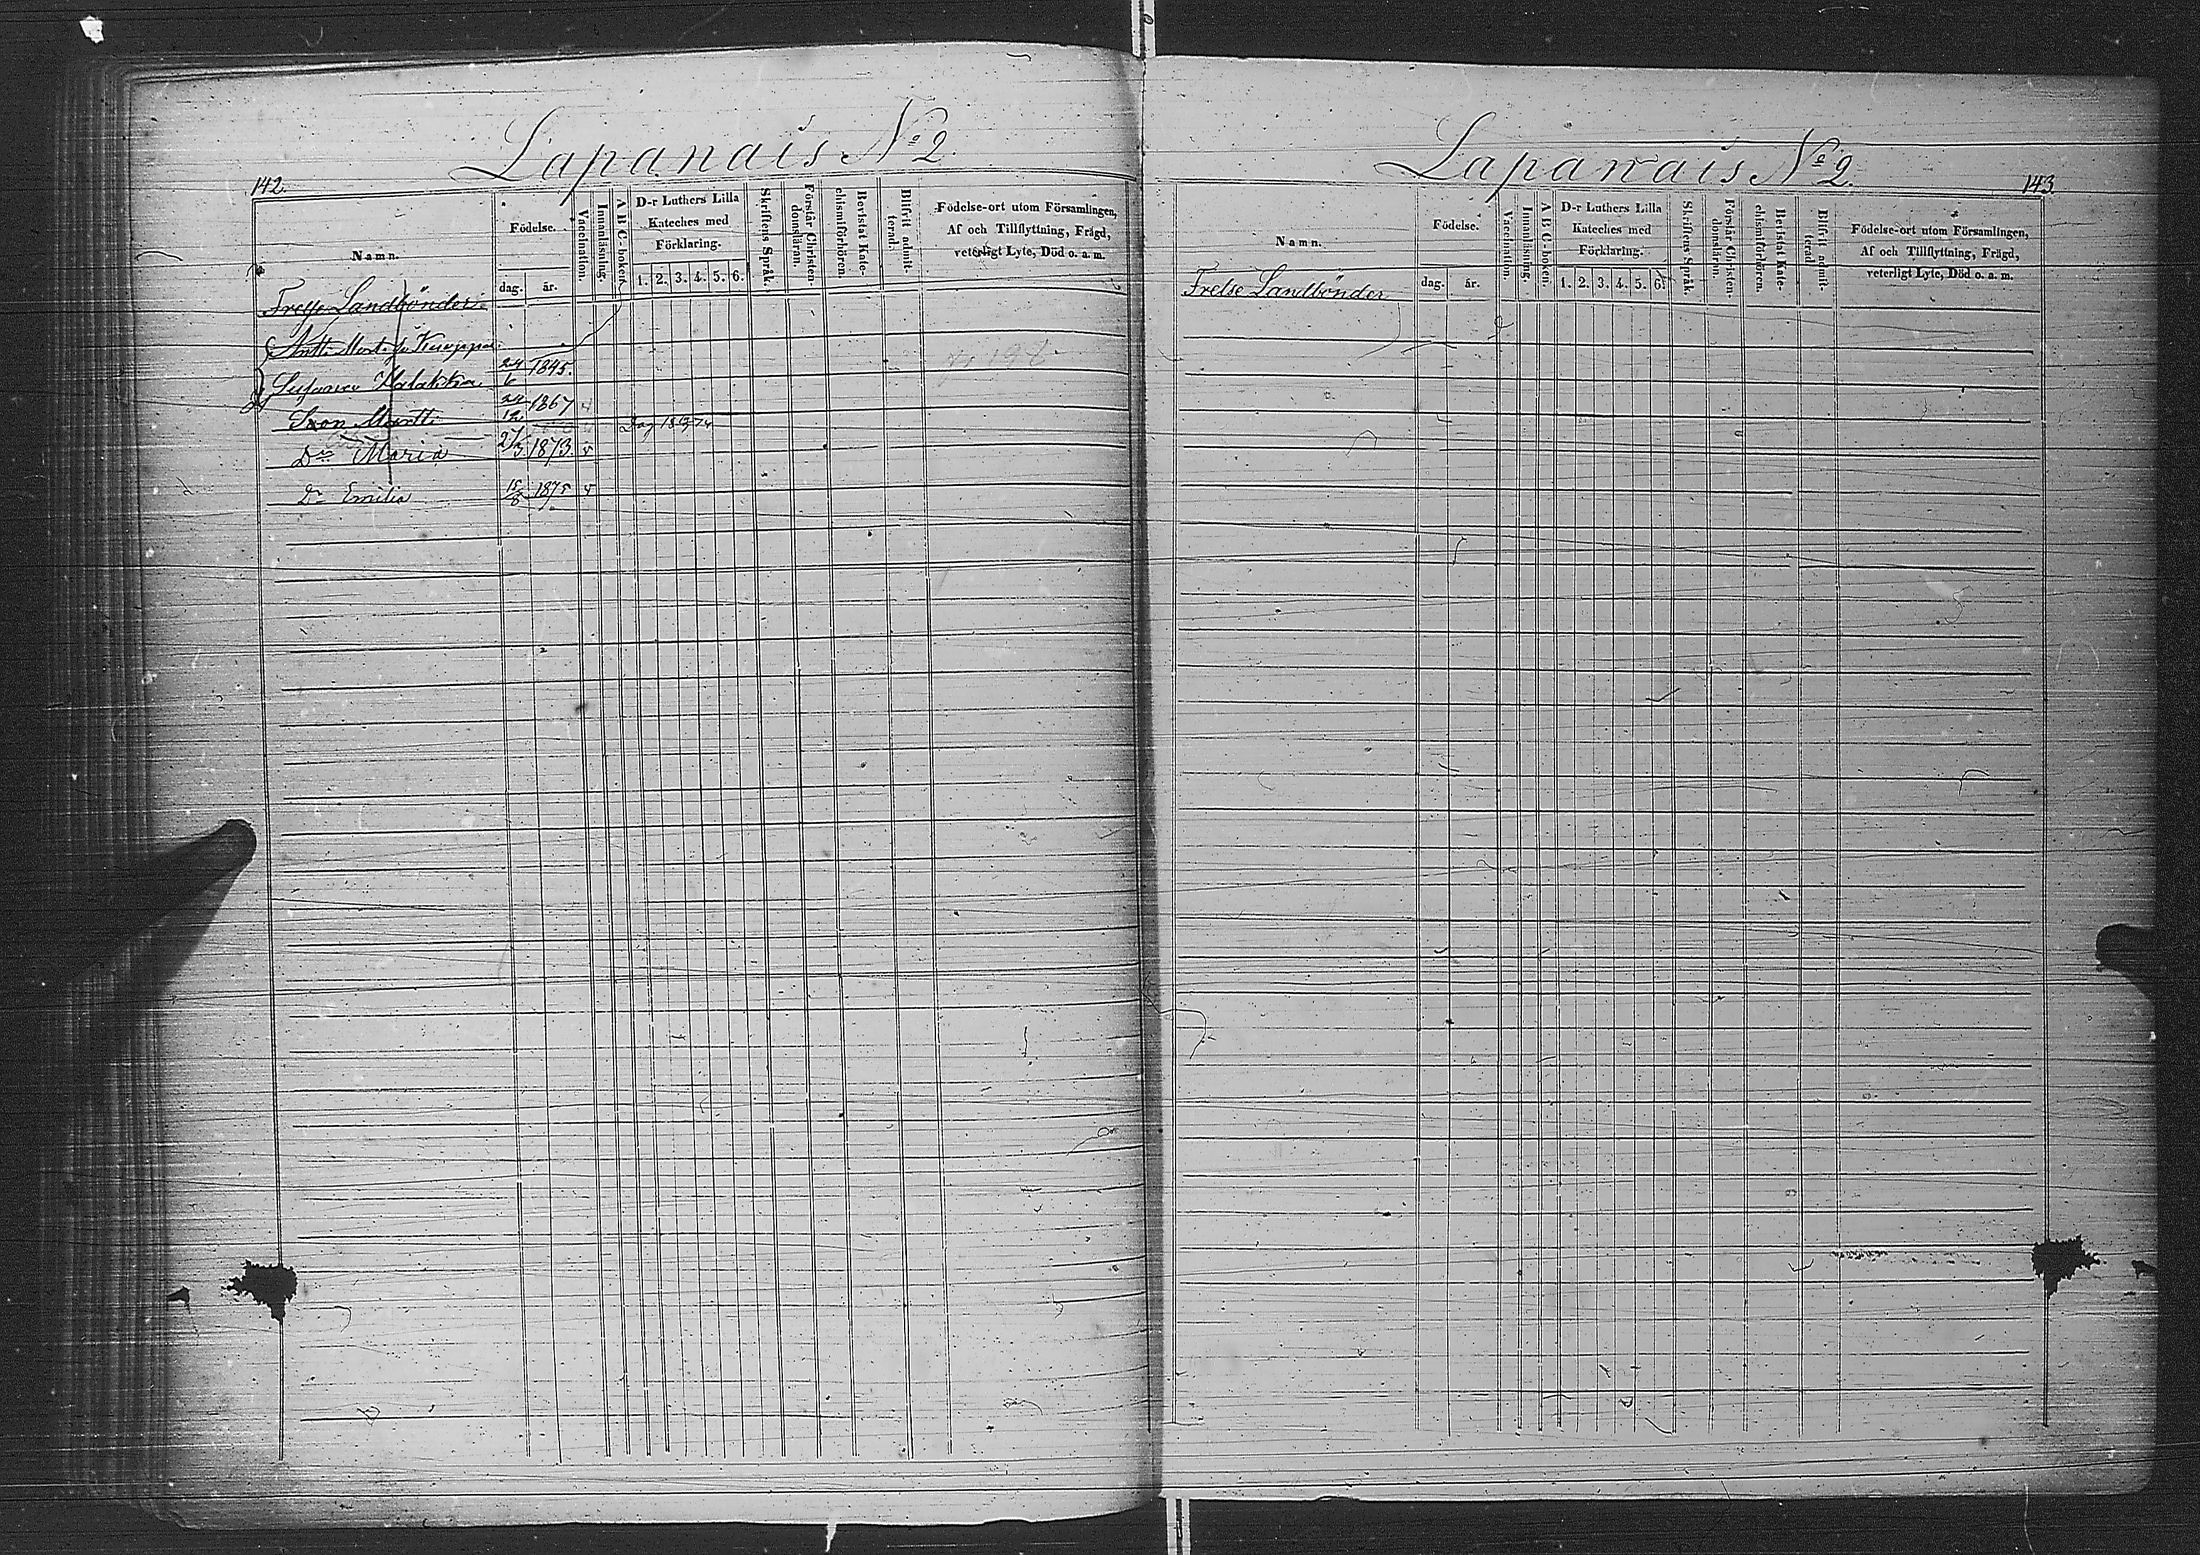 142.
Lapanais No 2.
Namn.
Födelse.
dag.
år.
Vaccination.
Innanläsning.
ABC-boken.
D-r Luthers Lilla
Kateches med
Förklaring.
1. 2. 3. 4. 5. 6.
Skriftens Språk.
Förstår Christen-
domsläran.
Bevistat Kate-
chismiförhören.
Blifvit admit-
terad.
Födelse-ort utom Församlingen,
Af och Tillflyttning, Frägd,
veterligt Lyte, Död o. a. m.
Frelse Landbönder
Antti
24/6 1845.
24/12 1867
Son Martti
Dr Maria 1873.
Dr Emilia 15/8 1875
Lapanais No 2.
143
Namn.
Födelse.
dag.
år.
Vaccination.
Innanläsning.
ABC-boken.
D-r Luthers Lilla
Kateches med
Förklaring.
1. 2. 3. 4. 5. 6.
Skriftens Språk.
Förstår Christen-
domsläran.
Bevistat Kate-
chismiförhören.
Blifvit admit-
terad.
Födelse-ort utom Församlingen,
Af och Tillflyttning, Frägd,
veterligt Lyte, Död o. a. m.
Frelse Landbönder